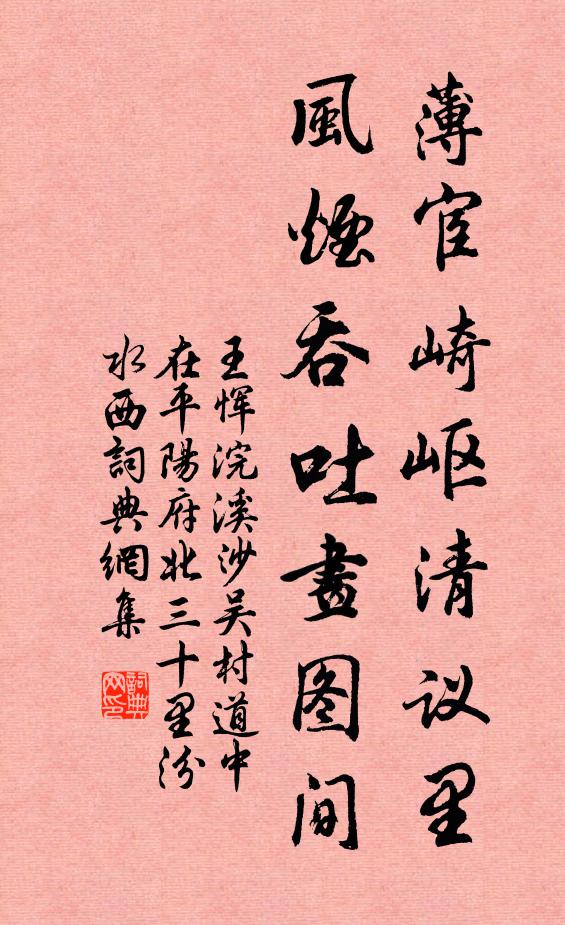 薄宦崎岖清议里
風煙吞吐畫图间
王恽浣溪沙吴村道中
在平陽府北三十里汾
水西詞典網集
詞典网印